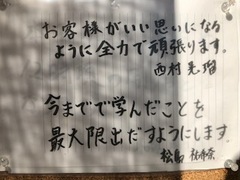 お客様がいい思いになる
ように全力で頑張ります。
西村
今までで学んだことを
最大限出だすようにします。
松島